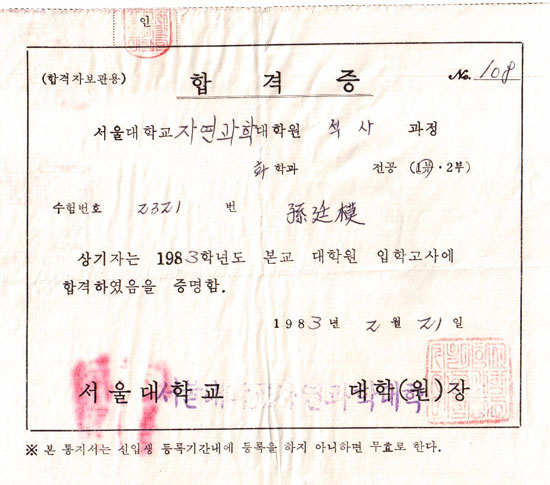 인
(합격자보관용) 합격증 No. 108
서울대학교 자연과학대학원 석사 과정
화학과 전공 (1부·2부)
수험번호 2321 번 孫廷模
상기자는 1983학년도 본교 대학원 입학고사에
합격하였음을 증명함.
1983년 2월 21일
서울대학교 대학(원)장
서울대 자연과학대학
※ 본 통지서는 신입생 등록기간내에 등록을 하지 아니하면 무효로 한다.